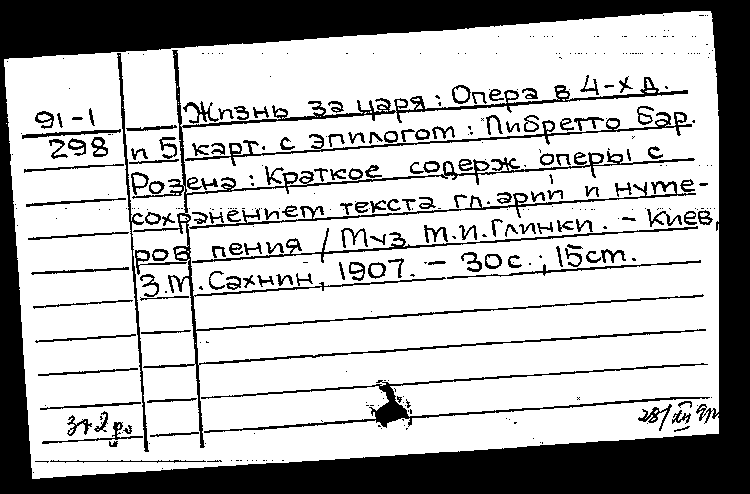 91-1 Жизнь за царя: Опера в 4-х д.
298 и 5 карт. с эпилогом: Либретто бар.
Розена: Краткое содерж. оперы с
сохранением текста гл. арий и нуме-
ров пения / Муз М.И.Глинки. – Киев,
З.М.Сахнин, 1907. – 30с.; 15см.